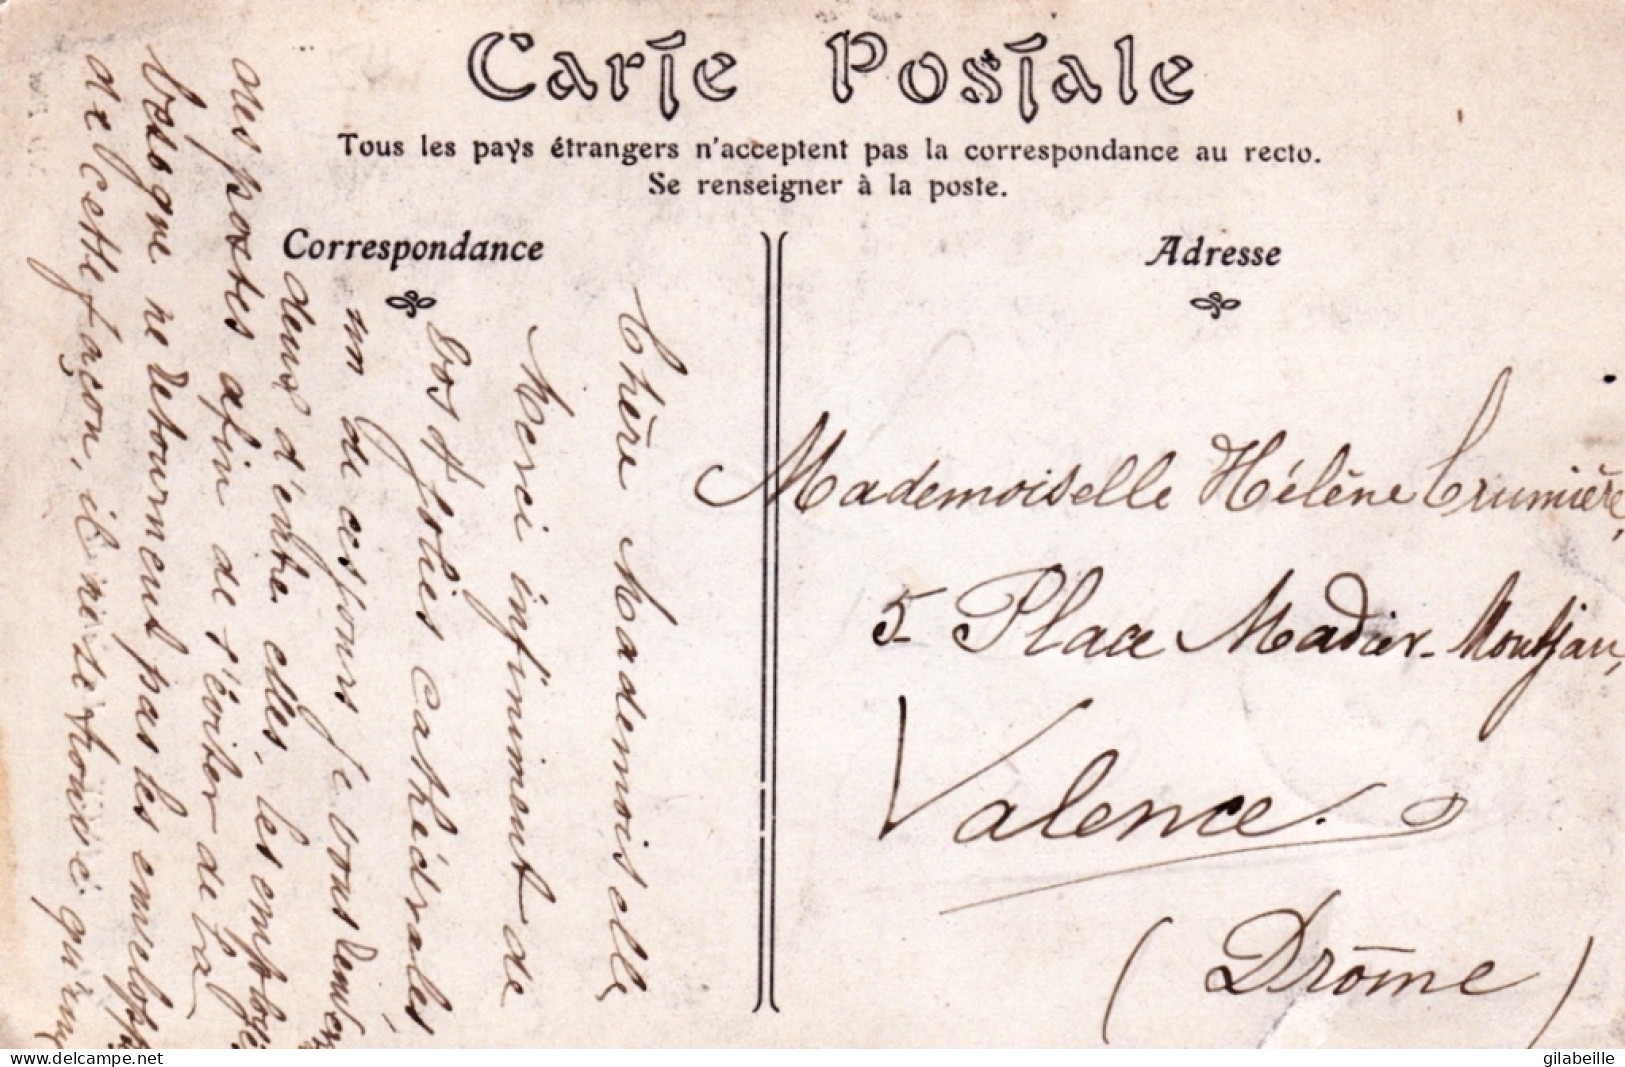 Carte Postale
Tous les pays étrangers n'acceptent pas la correspondance au recto.
Se renseigner à la poste.
Correspondance
Adresse
Chère Mademoiselle
Merci infiniment de
vos 4 jolies cathédrales
un de ces jours je vous
deux d'entre elles, les employés
des postes afin de s'éviter de la
besogne ne retournent pas les
de cette façon, il ne se trouve qu'un
Mademoiselle Hélène Crumière,
5 Place Madier-Montjau,
Valence.
(Drôme)
delcampe.net
gilabeille